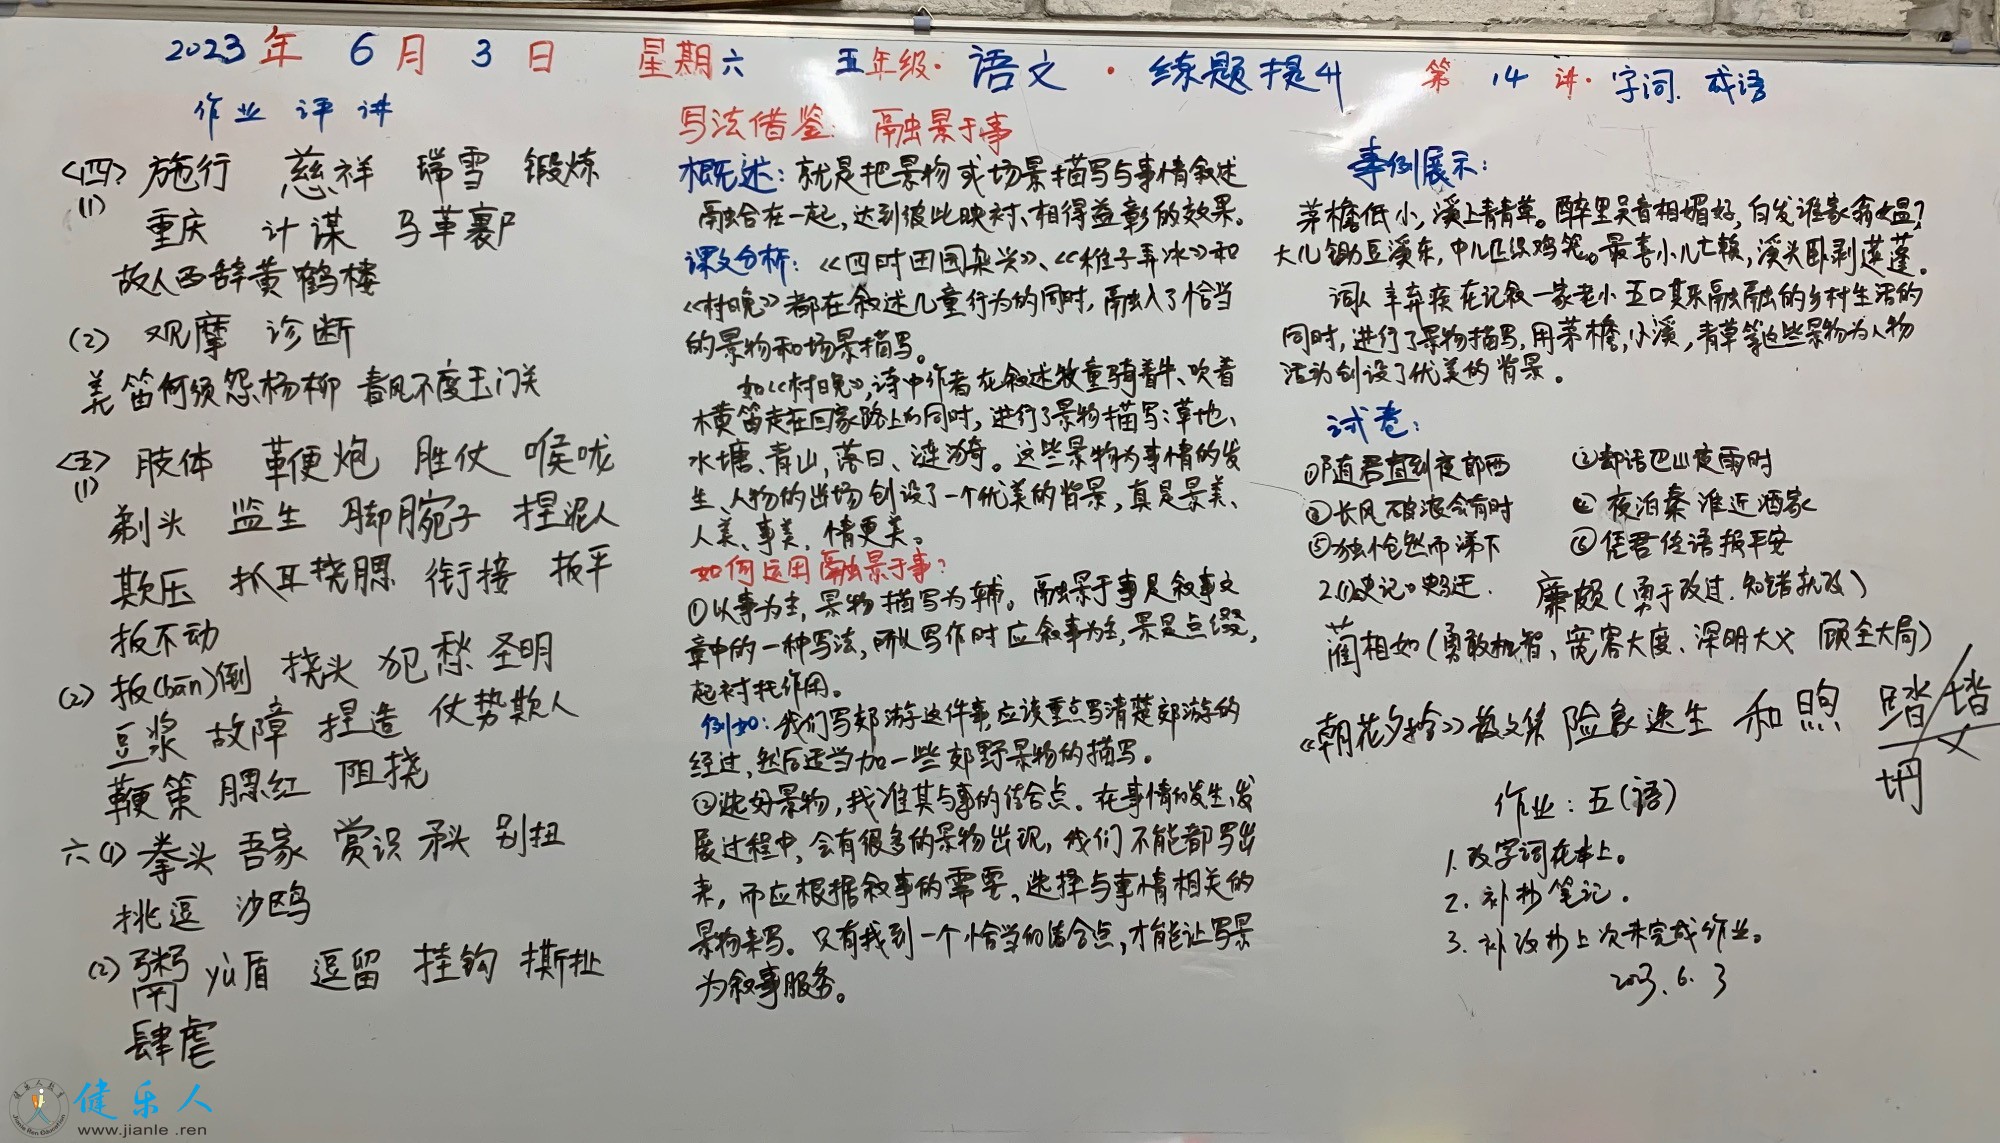 2023年 6月 3日 星期六 五年级·语文·练题提升 第14讲·字词.成语
作业评讲
<四>(1) 施行 慈祥 瑞雪 锻炼
重庆 计谋 马革裹尸
故人西辞黄鹤楼
(2) 观摩 诊断
羌笛何须怨杨柳 春风不度玉门关
<五>(1) 肢体 鞭炮 胜仗 喉咙
剃头 监生 脚腕子 捏泥人
欺压 抓耳挠腮 衔接 扳平
扳不动
(2) 扳(bān)倒 挠头 犯愁 圣明
豆浆 故障 捏造 仗势欺人
鞭策 腮红 阻挠
六(1) 拳头 吾家 赏识 矛头 别扭
挑逗 沙鸥
(2) 粥 yù 盾 逗留 挂钩 撕扯
肆虐
写法借鉴: 融景于事
概述: 就是把景物或场景描写与事情叙述
融合在一起,达到彼此映衬、相得益彰的效果。
课文分析: 《四时田园杂兴》、《稚子弄冰》和
《村晚》都在叙述儿童行为的同时,融入了恰当
的景物和场景描写。
如《村晚》,诗中作者在叙述牧童骑着牛、吹着
横笛走在回家路上的同时,进行了景物描写:草地、
水塘、青山,落日、涟漪。这些景物为事情的发
生、人物的出场创设了一个优美的背景,真是景美、
人美、事美,情更美。
如何运用融景于事?
①以事为主,景物描写为辅。融景于事是叙事文
章中的一种写法,所以写作时应叙事为主,景是点缀,
起衬托作用。
例如:我们写郊游这件事,应该重点写清楚郊游的
经过,然后适当加一些郊野景物的描写。
②选好景物,找准其与事的结合点。在事情的发生、发
展过程中,会有很多的景物出现,我们不能都写出
来,而应根据叙事的需要,选择与事情相关的
景物来写。只有找到一个恰当的结合点,才能让写景
为叙事服务。
事例展示:
茅檐低小,溪上青青草。醉里吴音相媚好,白发谁家翁媪?
大儿锄豆溪东,中儿正织鸡笼。最喜小儿亡赖,溪头卧剥莲蓬。
词人辛弃疾在记叙一家老小五口其乐融融的乡村生活的
同时,进行了景物描写,用茅檐,小溪,青草等这些景物为人物
活动创设了优美的背景。
试卷:
①随君直到夜郎西 ②却话巴山夜雨时
③长风破浪会有时 ④夜泊秦淮近酒家
⑤独怆然而涕下 ⑥凭君传语报平安
2.(1)史记 司马迁. 廉颇(勇于改过.知错就改)
蔺相如(勇敢机智、宽容大度、深明大义 顾全大局)
《朝花夕拾》散文集 险象迭生 和煦 踏
作业:五(语)
1.改字词在本上。
2.补抄笔记.
3.补改抄上次未完成作业。
2023.6.3
健乐人
www.jianle.ren